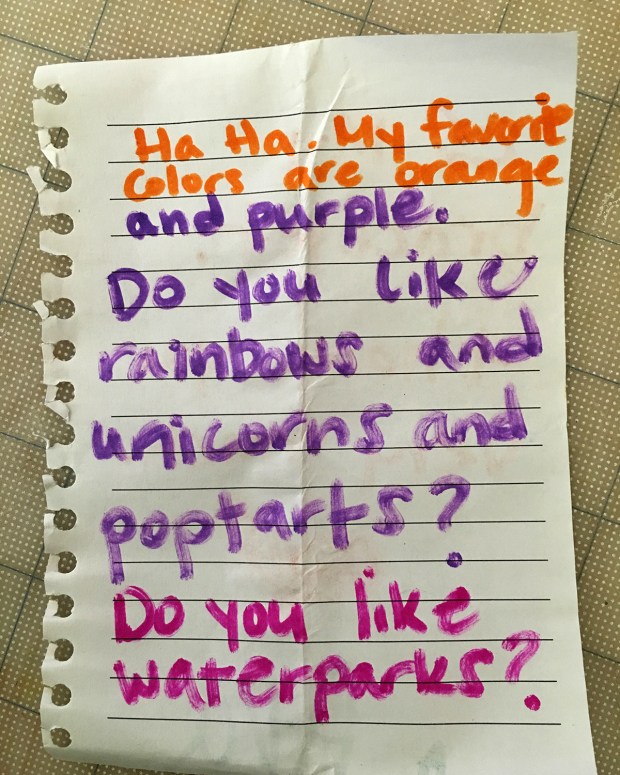 Ha Ha. My favorite
colors are orange
and purple.
Do you like
rainbows and
unicorns and
poptarts?
Do you like
waterparks?